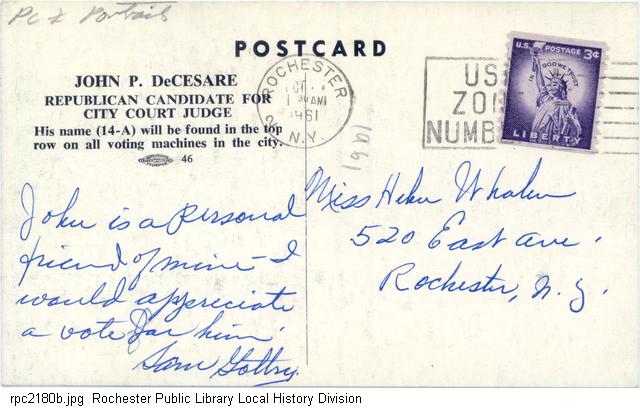 Pc & Portraits
POSTCARD
JOHN P. DeCESARE
REPUBLICAN CANDIDATE FOR
CITY COURT JUDGE
His name (14-A) will be found in the top
row on all voting machines in the city.
46
ROCHESTER
1961
2
N.Y.
US
ZON
NUMB
U.S. POSTAGE 3¢
IN GOD WE TRUST
LIBERTY
1961
John is a personal
friend of mine - I
would appreciate
a vote for him.
Sam Gottry
Miss Helen Whalen
520 East Ave.
Rochester, N.Y.
rpc2180b.jpg Rochester Public Library Local History Division